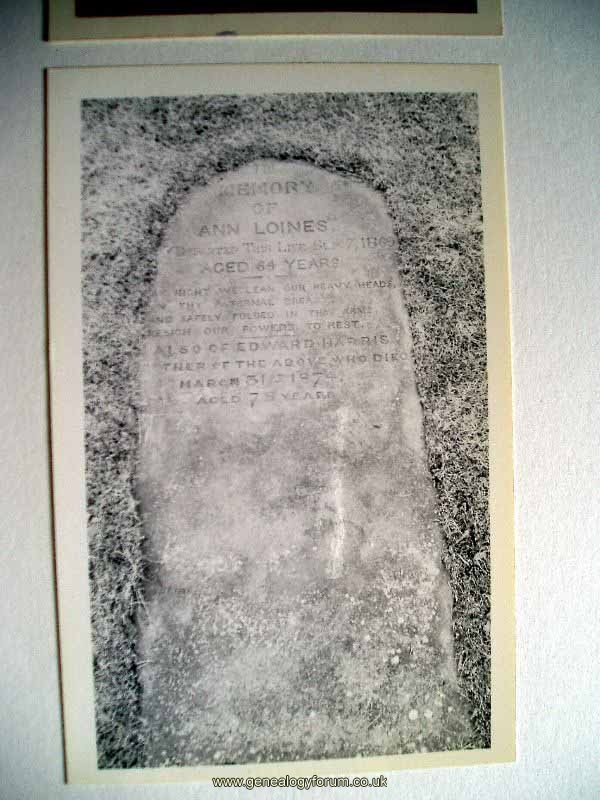 MEMORY
OF
ANN LOINES
DEPARTED THIS LIFE 7, 1869
AGED 64 YEARS
NIGHT WE LEAN OUR HEAVY HEADS,
THY
AND SAFELY FOLDED IN THY ARMS
RESIGN OUR POWERS TO REST.
ALSO OF EDWARD HARRIS
THER OF THE ABOVE WHO DIED
MARCH 31ST 187
AGED 78 YEARS
www.genealogyforum.co.uk